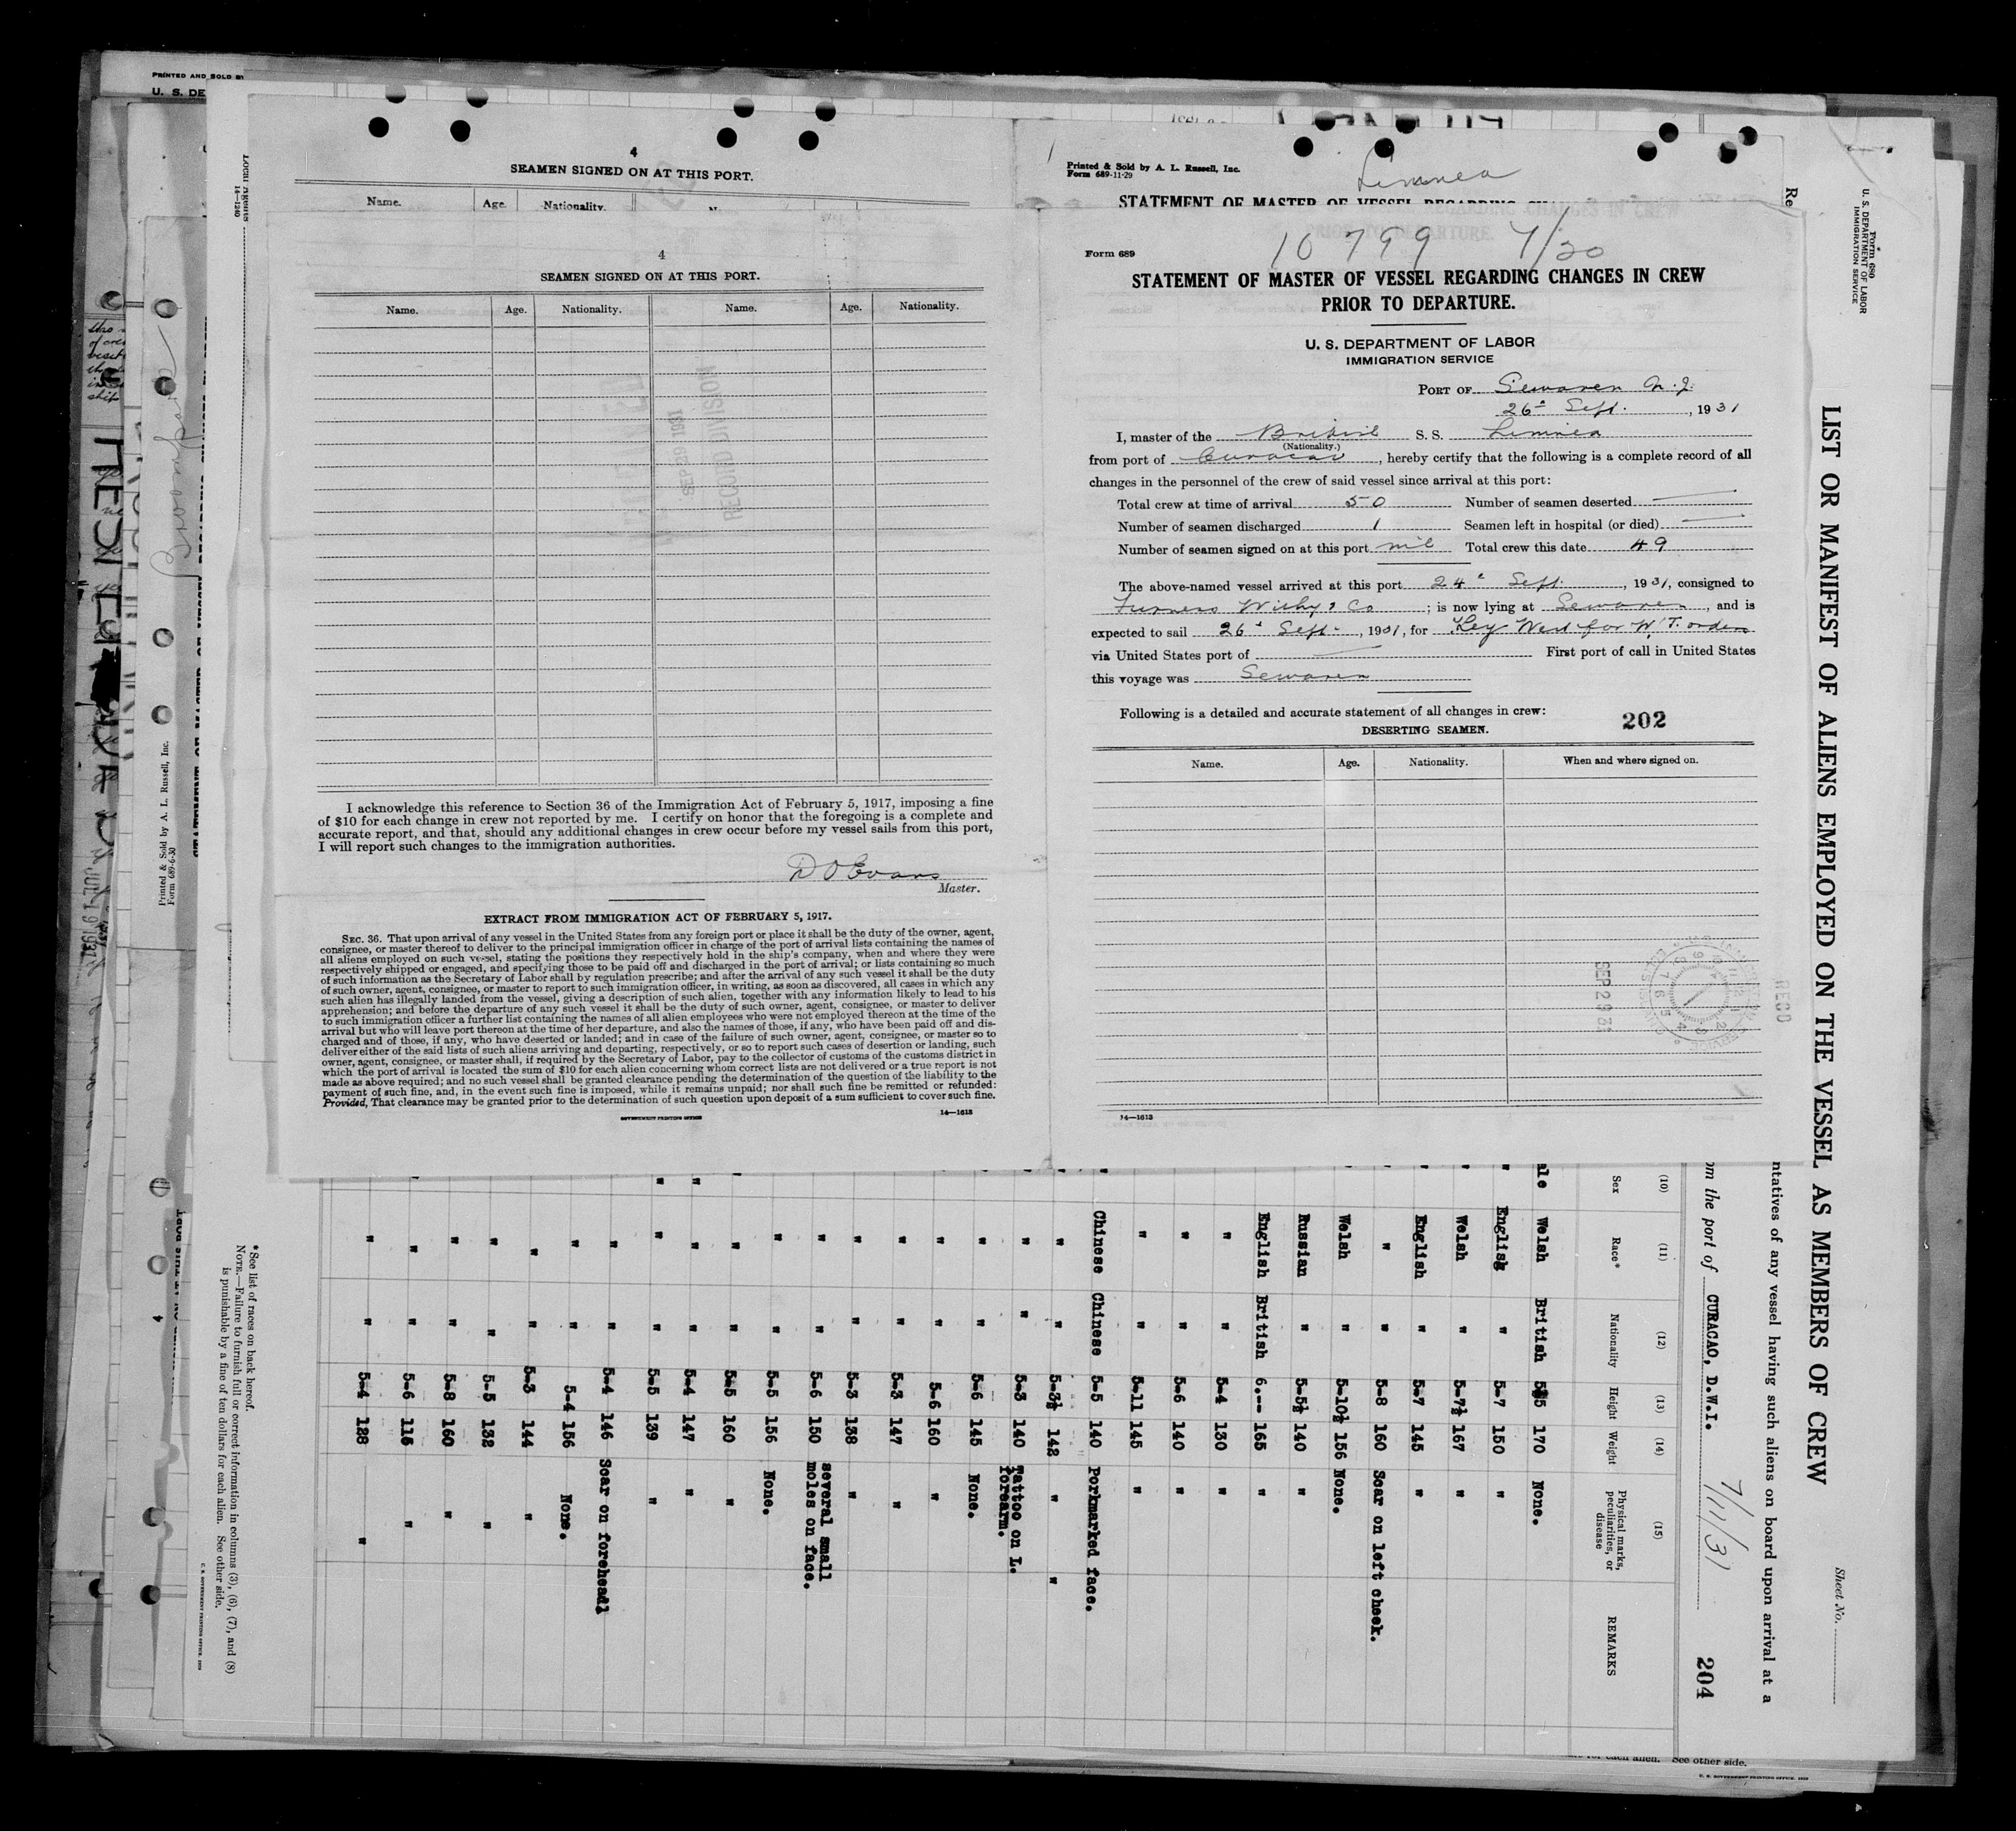 PRINTED AND SOLD BY
U. S. DE
4
SEAMEN SIGNED ON AT THIS PORT.
Name. Age. Nationality.
4
SEAMEN SIGNED ON AT THIS PORT.
Name. Age. Nationality. Name. Age. Nationality.
RECORD DIVISION
I acknowledge this reference to Section 36 of the Immigration Act of February 5, 1917, imposing a fine
of $10 for each change in crew not reported by me. I certify on honor that the foregoing is a complete and
accurate report, and that, should any additional changes in crew occur before my vessel sails from this port,
I will report such changes to the immigration authorities.
D O Evans
Master.
EXTRACT FROM IMMIGRATION ACT OF FEBRUARY 5, 1917.
SEC. 36. That upon arrival of any vessel in the United States from any foreign port or place it shall be the duty of the owner, agent,
consignee, or master thereof to deliver to the principal immigration officer in charge of the port of arrival lists containing the names of
all aliens employed on such vessel, stating the positions they respectively hold in the ship's company, when and where they were
respectively shipped or engaged, and specifying those to be paid off and discharged in the port of arrival; or lists containing so much
of such information as the Secretary of Labor shall by regulation prescribe; and after the arrival of any such vessel it shall be the duty
of such owner, agent, consignee, or master to report to such immigration officer, in writing, as soon as discovered, all cases in which any
such alien has illegally landed from the vessel, giving a description of such alien, together with any information likely to lead to his
apprehension; and before the departure of any such vessel it shall be the duty of such owner, agent, consignee, or master to deliver
to such immigration officer a further list containing the names of all alien employees who were not employed thereon at the time of the
arrival but who will leave port thereon at the time of her departure, and also the names of those, if any, who have been paid off and dis-
charged and of those, if any, who have deserted or landed; and in case of the failure of such owner, agent, consignee, or master so to
deliver either of the said lists of such aliens arriving and departing, respectively, or so to report such cases of desertion or landing, such
owner, agent, consignee, or master shall, if required by the Secretary of Labor, pay to the collector of customs of the customs district in
which the port of arrival is located the sum of $10 for each alien concerning whom correct lists are not delivered or a true report is not
made as above required; and no such vessel shall be granted clearance pending the determination of the question of the liability to the
payment of such fine, and, in the event such fine is imposed, while it remains unpaid; nor shall such fine be remitted or refunded:
Provided, That clearance may be granted prior to the determination of such question upon deposit of a sum sufficient to cover such fine.
GOVERNMENT PRINTING OFFICE 14—1613
Printed & Sold by A. L. Russell, Inc.
Form 689-11-29
Limnea
STATEMENT OF MASTER OF VESSEL REGARDING CH
10799 7/20
Form 689
STATEMENT OF MASTER OF VESSEL REGARDING CHANGES IN CREW
PRIOR TO DEPARTURE.
U. S. DEPARTMENT OF LABOR
IMMIGRATION SERVICE
PORT OF Sewaren N.J.
26th Sept. , 1931
I, master of the British S. S. Limnea
(Nationality.)
from port of Curacao , hereby certify that the following is a complete record of all
changes in the personnel of the crew of said vessel since arrival at this port:
Total crew at time of arrival 50 Number of seamen deserted
Number of seamen discharged 1 Seamen left in hospital (or died)
Number of seamen signed on at this port nil Total crew this date 49
The above-named vessel arrived at this port 24th Sept. , 1931, consigned to
Furness Withy & Co ; is now lying at Sewaren , and is
expected to sail 26th Sept. , 1931, for Key West for W. T. orders
via United States port of First port of call in United States
this voyage was Sewaren
Following is a detailed and accurate statement of all changes in crew:
202
DESERTING SEAMEN.
Name. Age. Nationality. When and where signed on.
SEP 29 31
RECD
14—1613
Form 680
U. S. DEPARTMENT OF LABOR
IMMIGRATION SERVICE
LIST OR MANIFEST OF ALIENS EMPLOYED ON THE VESSEL AS MEMBERS OF CREW
Sheet No.
ntatives of any vessel having such aliens on board upon arrival at a
om the port of CURACAO, D.W.I. 7/11/31
204
(10) (11) (12) (13) (14) (15)
Sex Race* Nationality Height Weight Physical marks, peculiarities, or disease REMARKS
ale Welsh British 5-5 170 None.
" English " 5-7 150 "
" Welsh " 5-7½ 167 "
" English " 5-7 145 "
" " " 5-8 160 Scar on left cheek.
" Welsh " 5-10½ 156 None.
" Russian " 5-5½ 140 "
" English British 6.-- 165 "
" " 5-4 130 "
" " 5-6 140 "
" " 5-11 145 "
" Chinese Chinese 5-5 140 Porkmarked face.
" " 5-3½ 142 " "
" " 5-3 140 Tattoo on L. forearm.
" " 5-6 145 None.
" " 5-6 160 "
" " 5-3 147 "
" " 5-3 138 "
" " 5-6 150 several small moles on face.
" " 5-5 156 None.
" " 5-5 160 "
" " " 5-4 147 "
" " " 5-5 139 "
" " 5-4 146 Scar on forehead
" " 5-4 156 None.
" " 5-3 144 "
" " 5-5 132 "
" " 5-8 160 "
" " 5-6 115 "
" " 5-4 128 "
*See list of races on back hereof.
NOTE.—Failure to furnish full or correct information in columns (3), (6), (7), and (8)
is punishable by a fine of ten dollars for each alien. See other side.
U. S. GOVERNMENT PRINTING OFFICE: 1929
Local Agents
14—1240
Printed & Sold by A. L. Russell, Inc.
Form 689-6-30
4
See other side.
U. S. GOVERNMENT PRINTING OFFICE: 1929